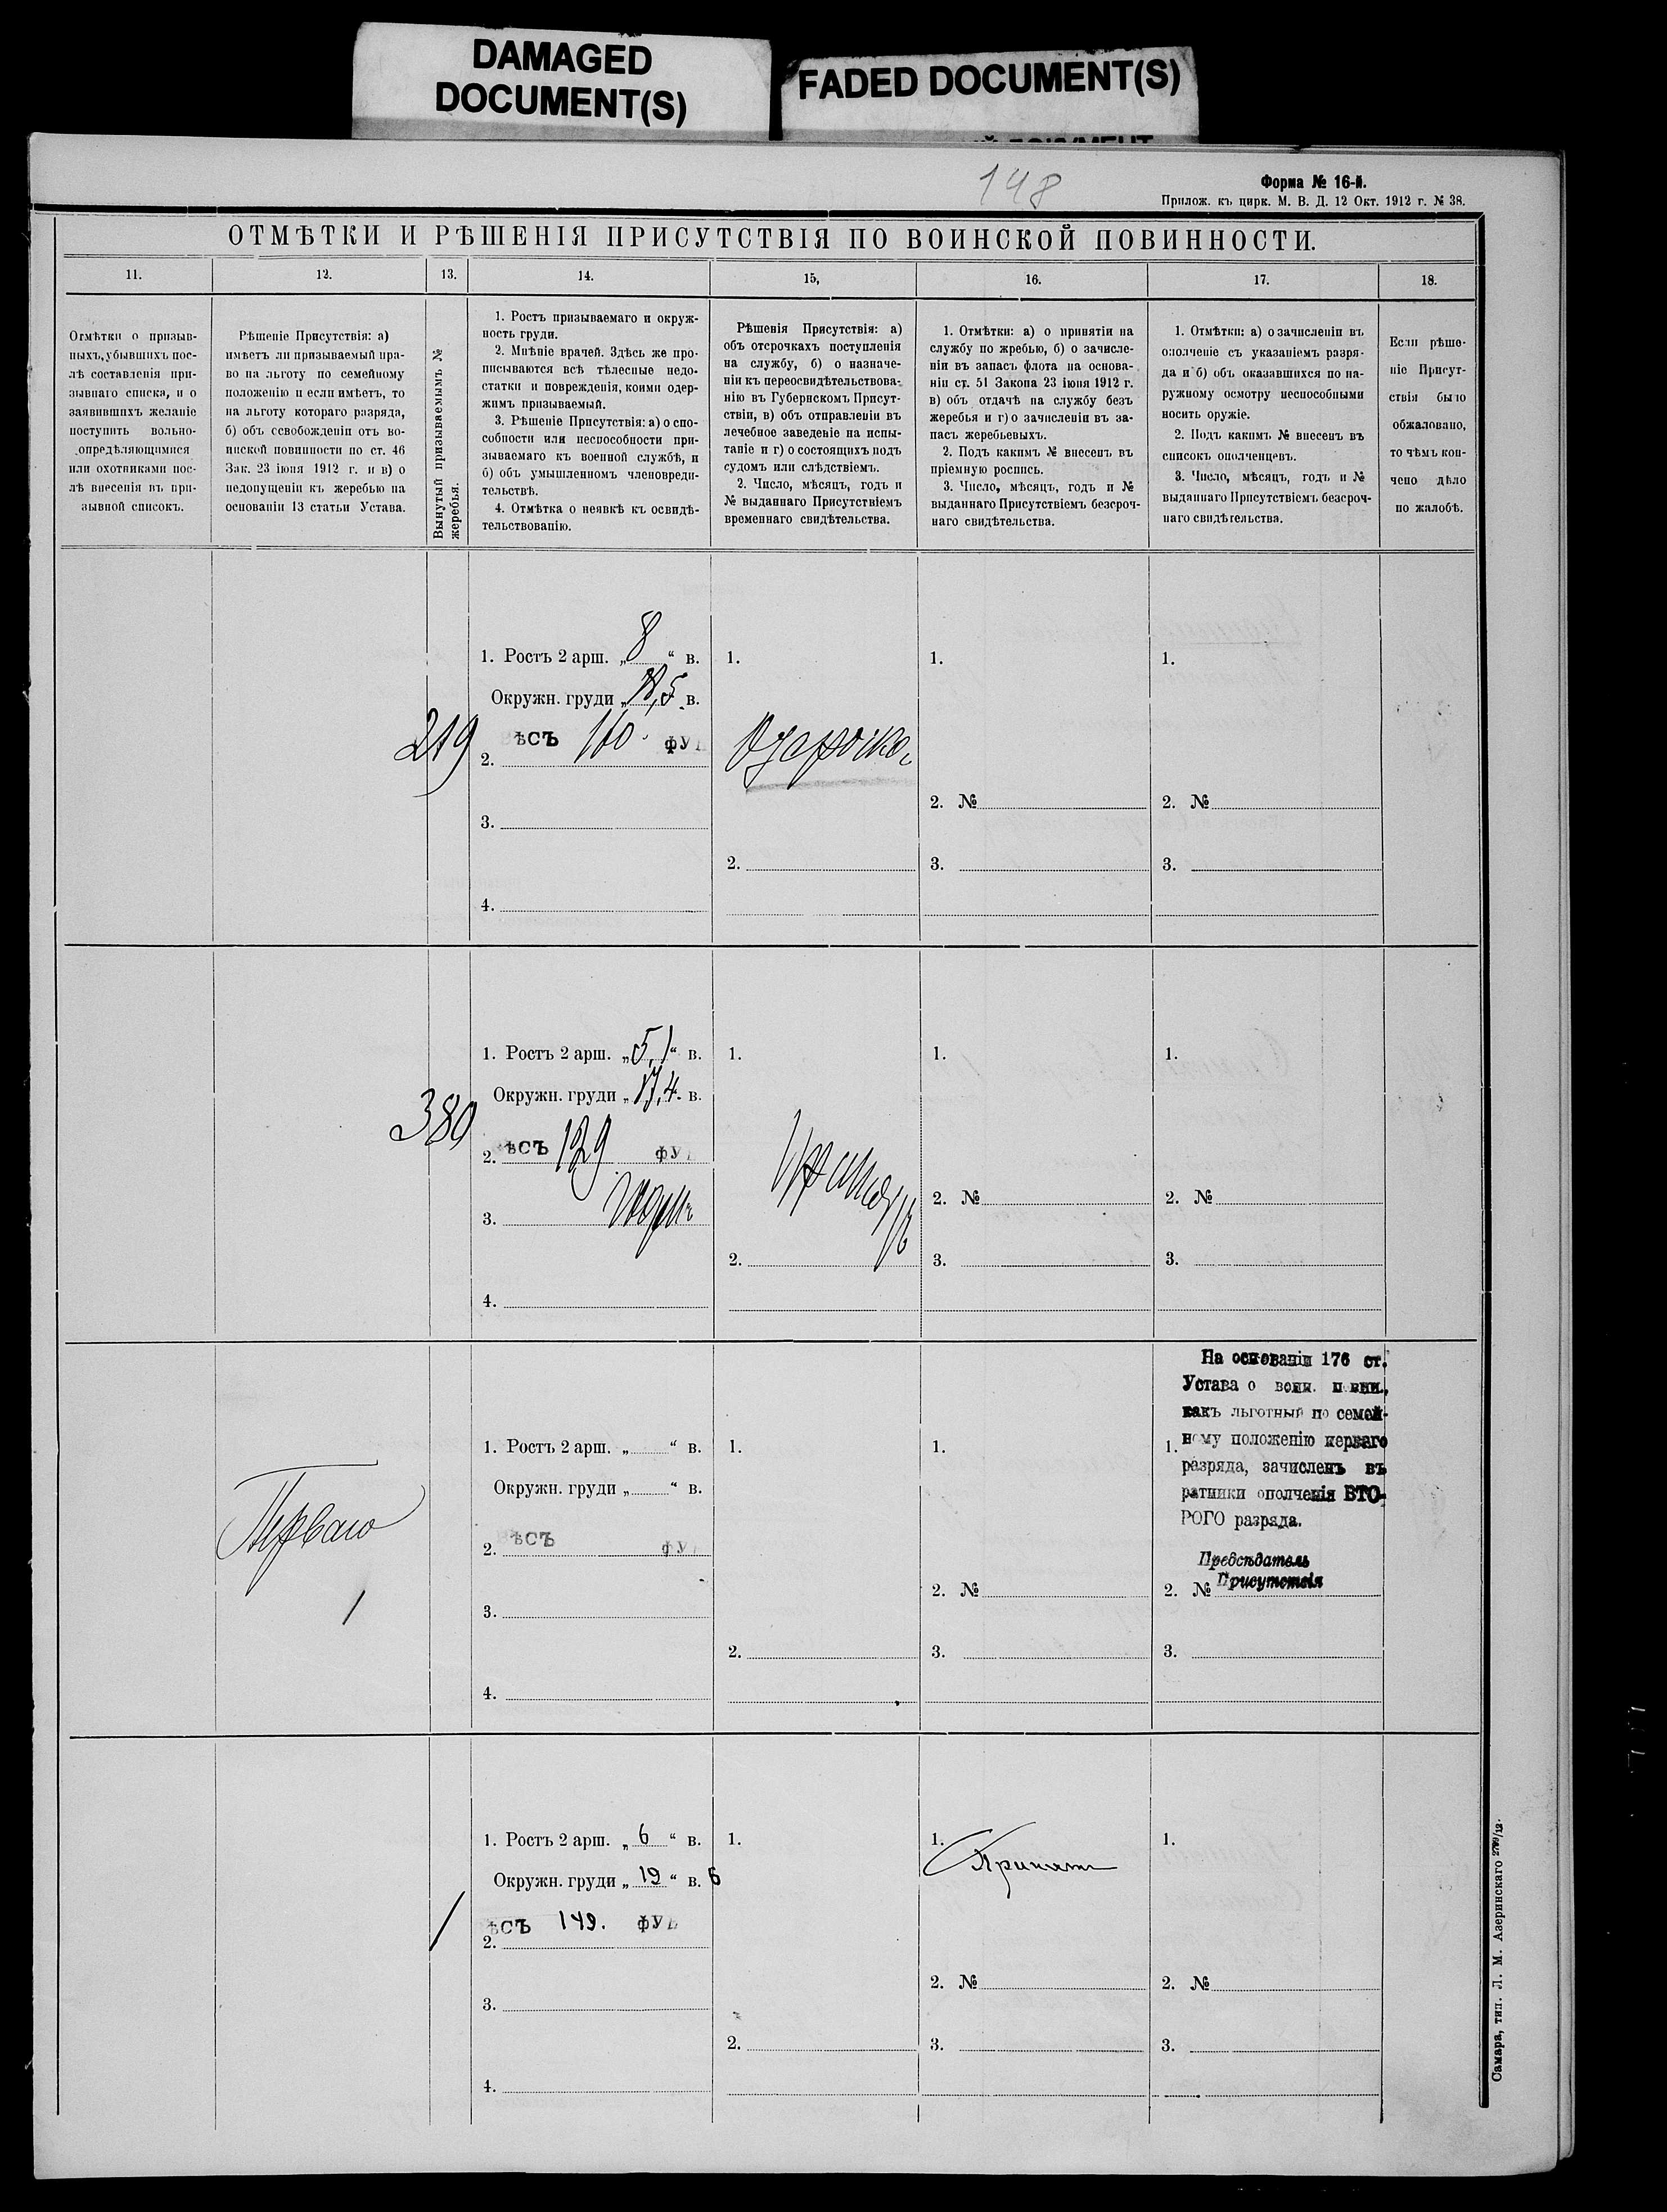 DAMAGED
DOCUMENT(S)
FADED DOCUMENT(S)
148
Форма № 16-й.
Прилож. къ цирк. М. В. Д. 12 Окт. 1912 г. № 38.
ОТМѢТКИ И РѢШЕНІЯ ПРИСУТСТВІЯ ПО ВОИНСКОЙ ПОВИННОСТИ.
11.
12.
13.
14.
15,
16.
17.
18.
Отмѣтки о призыв-
ныхъ, убывшихъ пос-
лѣ составленія при-
зывнаго списка, и о
заявившихъ желаніе
поступить вольно-
опредѣляющимися
или охотниками пос-
лѣ внесенія въ при-
зывной списокъ.
Рѣшеніе Присутствія: а)
имѣетъ ли призываемый пра-
во на льготу по семейному
положенію и если имѣетъ, то
на льготу котораго разряда,
б) объ освобожденіи отъ во-
инской повинности по ст. 46
Зак. 23 іюня 1912 г. и в) о
недопущеніи къ жеребью на
основаніи 13 статьи Устава.
Вынутый призываемымъ №
жеребья.
1. Ростъ призываемаго и окруж-
ность груди.
2. Мнѣніе врачей. Здѣсь же про-
писываются всѣ тѣлесные недо-
статки и поврежденія, коими одер-
жимъ призываемый.
3. Рѣшеніе Присутствія: а) о спо-
собности или неспособности при-
зываемаго къ военной службѣ, и
б) объ умышленномъ членовреди-
тельствѣ.
4. Отмѣтка о неявкѣ къ освидѣ-
тельствованію.
Рѣшенія Присутствія: а)
объ отсрочкахъ поступленія
на службу, б) о назначе-
ніи къ переосвидѣтельствова-
нію въ Губернскомъ Присут-
ствіи, в) объ отправленіи въ
лечебное заведеніе на испы-
таніе и г) о состоящихъ подъ
судомъ или слѣдствіемъ.
2. Число, мѣсяцъ, годъ и
№ выданнаго Присутствіемъ
временнаго свидѣтельства.
1. Отмѣтки: а) о принятіи на
службу по жребью, б) о зачисле-
ніи въ запасъ флота на основа-
ніи ст. 51 Закона 23 іюня 1912 г.
в) объ отдачѣ на службу безъ
жеребья и г) о зачисленіи въ за-
пасъ жеребьевыхъ.
2. Подъ какимъ № внесенъ въ
пріемную роспись.
3. Число, мѣсяцъ, годъ и №
выданнаго Присутствіемъ безсроч-
наго свидѣтельства.
1. Отмѣтки: а) о зачисленіи въ
ополченіе съ указаніемъ разря-
да и б) объ оказавшихся по на-
ружному осмотру неспособными
носить оружіе.
2. Подъ какимъ № внесенъ въ
списокъ ополченцевъ.
3. Число, мѣсяцъ, годъ и №
выданнаго Присутствіемъ безсроч-
наго свидѣтельства.
Если рѣше-
ніе Присут-
ствія было
обжаловано,
то чѣмъ кон-
чено дѣло
по жалобѣ.
219
1. Ростъ 2 арш. „ 8 “ в.
Окружн. груди „ 18,5 в.
ѣсъ 160 фу
2.
3.
4.
1.
2.
1.
2. №
3.
1.
2. №
3.
380
1. Ростъ 2 арш. „ 5,1 “ в.
Окружн. груди „ 17,4 в.
2. ѣсъ 129 фу
3.
4.
1.
2.
1.
2. №
3.
1.
2. №
3.
Перваго
1
1. Ростъ 2 арш. „ “ в.
Окружн. груди „ “ в.
2. ѣсъ фу
3.
4.
1.
2.
1.
2. №
3.
На основаніи 176 ст.
Устава о воин. повин.,
какъ льготный по семей-
1. ному положенію перваго
разряда, зачисленъ въ
ратники ополченія ВТО-
РОГО разряда.
Предсѣдатель
Присутствія
2. №
3.
1
1. Ростъ 2 арш. „ 6 “ в.
Окружн. груди „ 19 “ в. 6
ѣсъ 149. фу
2.
3.
4.
1.
2.
1. Принятъ
2. №
3.
1.
2. №
3.
Самара, тип. Л. М. Азеринскаго 2799/12.